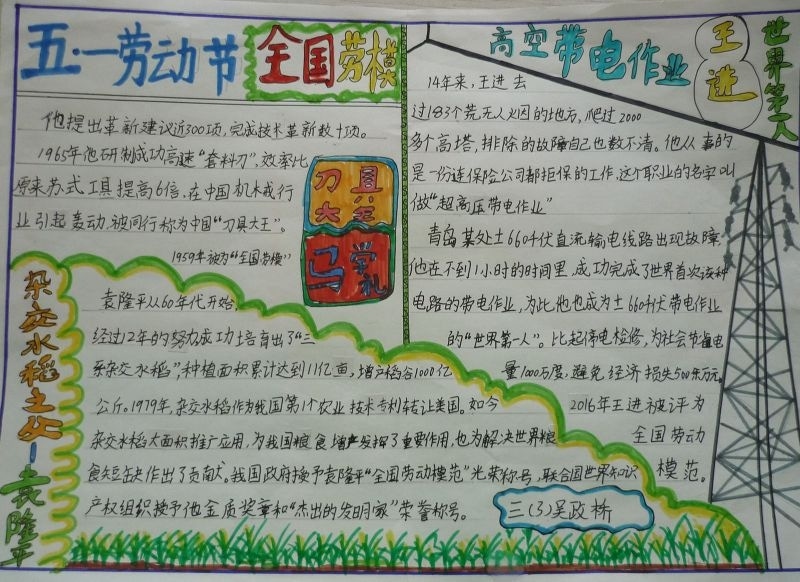 五·一劳动节
全国劳模
他提出革新建议近300项,完成技术革新数十项。
1965年他研制成功高速“套料刀”,效率比
原来苏式工具提高6倍,在中国机械行
业引起轰动,被同行称为中国“刀具大王”。
1959年被为“全国劳模”
刀具
大王
马学礼
杂交水稻之父—袁隆平
袁隆平从60年代开始,
经过12年的努力成功培育出了“三
系杂交水稻”,种植面积累计达到11亿亩,增产稻谷1000亿
公斤。1979年,杂交水稻作为我国第1个农业技术专利转让美国。如今
杂交水稻大面积推广应用,为我国粮食增产发挥了重要作用,也为解决世界粮
食短缺作出了贡献。我国政府授予袁隆平“全国劳动模范”光荣称号,联合国世界知识
产权组织授予他金质奖章和“杰出的发明家”荣誉称号。
高空带电作业
王进
世界第一人
14年来,王进去
过183个荒无人烟的地方,爬过2000
多个高塔,排除的故障自己也数不清。他从事的
是一份连保险公司都拒保的工作,这个职业的名字叫
做“超高压带电作业”
青岛某处±660千伏直流输电线路出现故障
他在不到1小时的时间里,成功完成了世界首次该种
电路的带电作业,为此,他也成为±660千伏带电作业
的“世界第一人”。比起停电检修,为社会节省电
量1000万度,避免经济损失500余万元。
2016年王进被评为
全国劳动
模范。
三(3)吴政桥